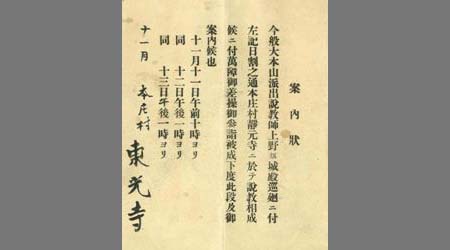 案內狀
今般大本山派出說教師上野城殿巡廻ニ付
左記日割之通本庄村靜元寺ニ於テ說教相成
候ニ付萬障御差操御參詣被成下度此段及御
案內候也
十一月十一日午前十時ヨリ
同 十二日午後一時ヨリ
同 十三日午後一時ヨリ
十一月 本庄村
東光寺